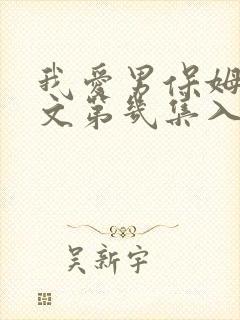 我爱男保姆
文第几集入
吴新宇